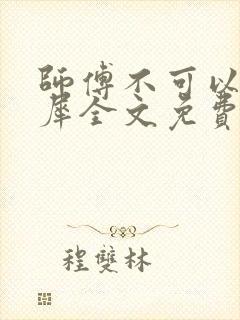 師傅不可以
犀全文免費
程雙林